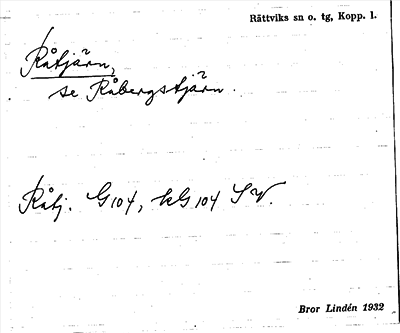 Rättviks sn o. tg, Kopp. l.
Råtjärn,
se Råbergstjärn.
Råtj. G 104, kG 104 SV.
Bror Lindén 1932